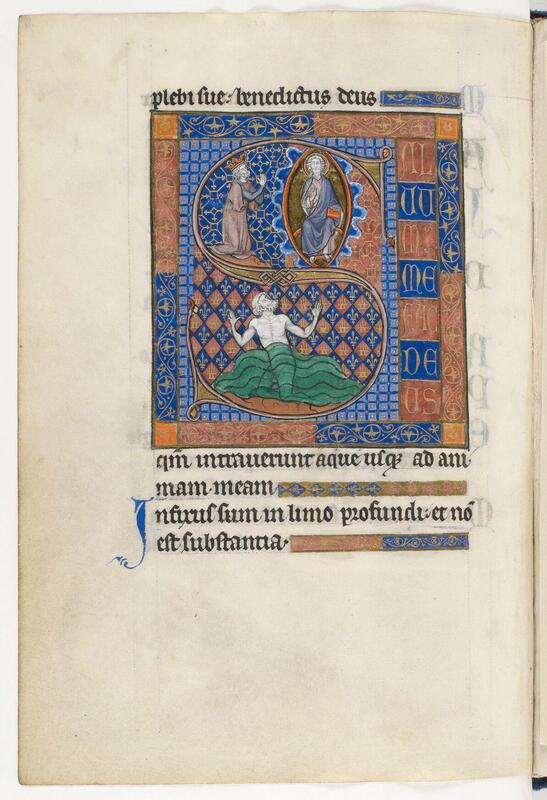 plebi sue: benedictus deus
S
AL
UU
M
ME
FA
DE
US
qm intrauerunt aque usqꝫ ad ani
mam meam
Infixus sum in limo profundi: et nō
est substantia.